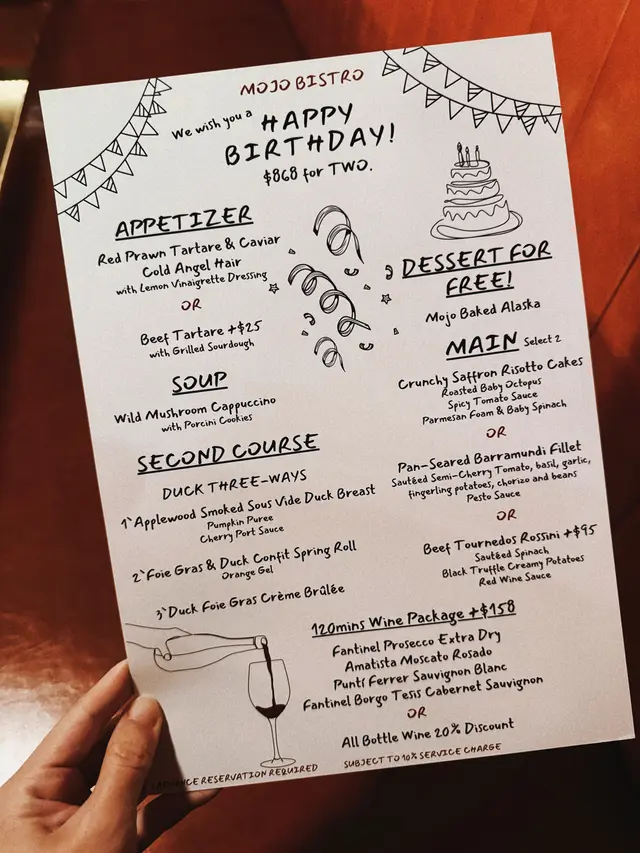 MOJO BISTRO
We wish you a HAPPY
BIRTHDAY!
$868 for TWO.
APPETIZER
Red Prawn Tartare & Caviar
Cold Angel Hair
with Lemon Vinaigrette Dressing
OR
Beef Tartare +$25
with Grilled Sourdough
SOUP
Wild Mushroom Cappuccino
with Porcini Cookies
SECOND COURSE
DUCK THREE-WAYS
1` Applewood Smoked Sous Vide Duck Breast
Pumpkin Puree
Cherry Port Sauce
2` Foie Gras & Duck Confit Spring Roll
Orange Gel
3` Duck Foie Gras Crème Brûlée
DESSERT FOR
FREE!
Mojo Baked Alaska
MAIN Select 2
Crunchy Saffron Risotto Cakes
Roasted Baby Octopus
Spicy Tomato Sauce
Parmesan Foam & Baby Spinach
OR
Pan-Seared Barramundi Fillet
Sautéed Semi-Cherry Tomato, basil, garlic,
fingerling potatoes, chorizo and beans
Pesto Sauce
OR
Beef Tournedos Rossini +$95
Sautéed Spinach
Black Truffle Creamy Potatoes
Red Wine Sauce
120mins Wine Package +$158
Fantinel Prosecco Extra Dry
Amatista Moscato Rosado
Puntí Ferrer Sauvignon Blanc
Fantinel Borgo Tesis Cabernet Sauvignon
OR
All Bottle Wine 20% Discount
RESERVATION REQUIRED
SUBJECT TO 10% SERVICE CHARGE